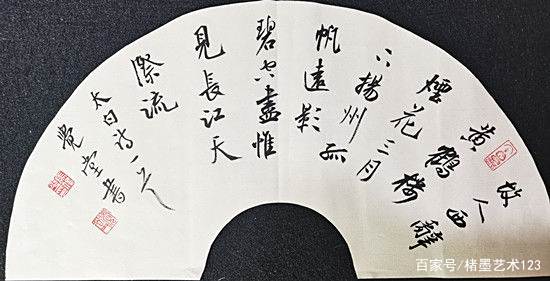 故人西辭
黃鶴樓
煙花三月
下揚州孤
帆遠影
碧空盡惟
見長江天
際流
太白诗一首
覺堂書
百家号/楮墨艺术123